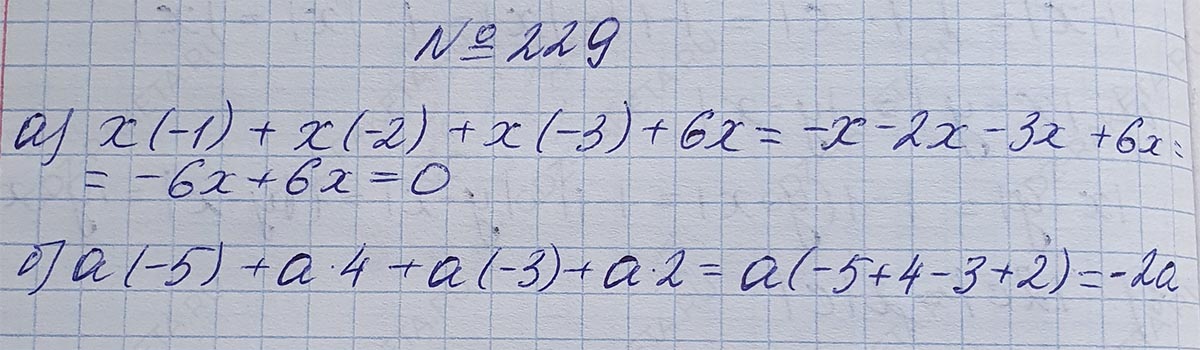 № 229
а) x(-1) + x(-2) + x(-3) + 6x = -x - 2x - 3x + 6x =
= -6x + 6x = 0
б) a(-5) + a·4 + a(-3) + a·2 = a(-5+4-3+2) = -2a